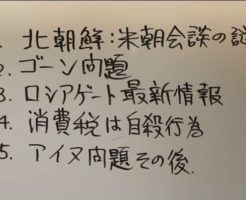 1. 北朝鮮:米朝会談の
2. ゴーン問題
3. ロシアゲート最新情報
4. 消費税は自殺行為
5. アイヌ問題その後.